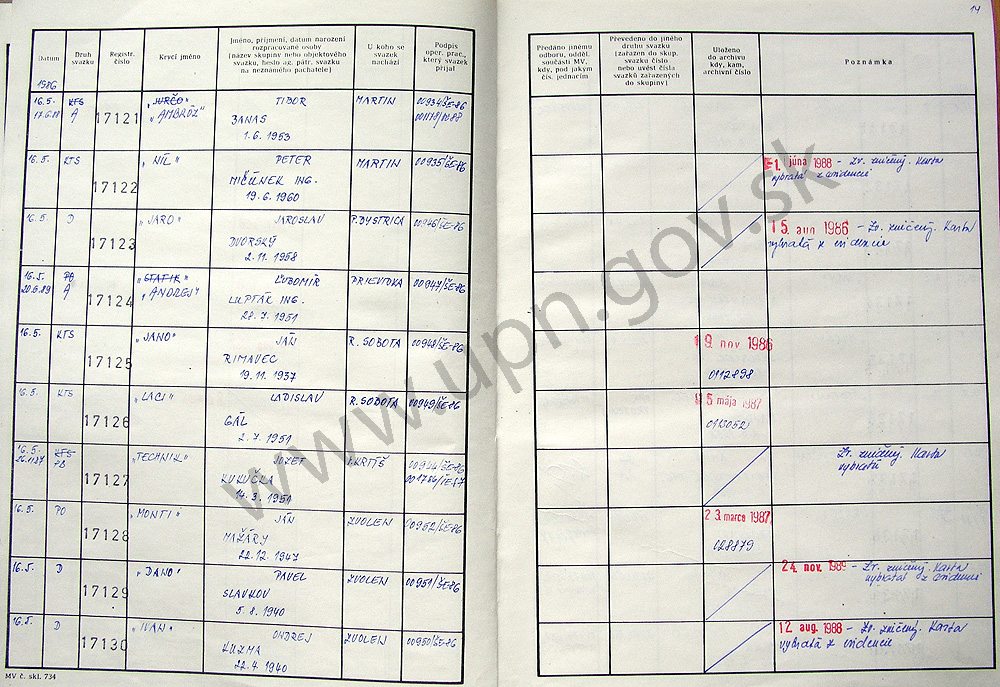 14
Datum
Druh svazku
Registr. číslo
Krycí jméno
Jméno, příjmení, datum narození rozpracované osoby (název skupiny nebo objektového svazku, heslo ag. pátr. svazku na neznámého pachatele)
U koho se svazek nachází
Podpis oper. prac., který svazek přijal
Předáno jinému odboru, odděl. součásti MV, kdy, pod jakým čís. jednacím
Převedeno do jiného druhu svazku (zařazen do skup. svazku číslo nebo uvést čísla svazků zařazených do skupiny)
Uloženo do archivu kdy, kam, archivní číslo
Poznámka
1986
16.5. KTS 17121 „JURČO" TIBOR MARTIN 00934/ŠE-86
A „AMBRÓZ"
BANAS
1. 6. 1953
16.5. KTS 17122 „NÍL" PETER MARTIN 00935/ŠE-86
MIČÚNEK ING.
19. 6. 1960
1. júna 1988 - Zv. zničený. Karta
vybratá z evidencie
16.5. D 17123 „JARO" JAROSLAV P. BYSTRICA 00946/ŠE-86
DVORSKÝ
2. 11. 1958
15. aug 1986 - Zv. zničený. Karta
vybratá z evidencie
16.5. PO 17124 „STATIK" ĽUBOMÍR PRIEVIDZA 00947/ŠE-86
A „ANDREJ"
LUPTÁK ING.
28. 7. 1951
16.5. KTS 17125 „JANO" JÁN R. SOBOTA 00948/ŠE-86
RIMAVEC
19. 11. 1937
19. nov 1986
0112898
16.5. KTS 17126 „LACI" LADISLAV R. SOBOTA 00949/ŠE-86
GÁL
2. 7. 1951
5. mája 1987
0113052
16.5. KTS 17127 „TECHNIK" JOZEF
PO
KUKUČKA
14. 3. 1951
Zv. zničený. Karta
vybratá
16.5. PO 17128 „MONTI" JÁN ZVOLEN 00952/ŠE-86
MAŽÁRY
22. 12. 1947
23. marca 1987
028879
16.5. D 17129 „DANO" PAVEL ZVOLEN 00951/ŠE-86
SLAVKOV
5. 8. 1940
24. nov. 1989 - Zv. zničený. Karta
vybratá z evidencie
16.5. D 17130 „IVAN" ONDREJ ZVOLEN 00950/ŠE-86
KUZMA
22. 4. 1940
12. aug. 1988 - Zv. zničený. Karta
vybratá z evidencie
MV č. skl. 734
www.upn.gov.sk